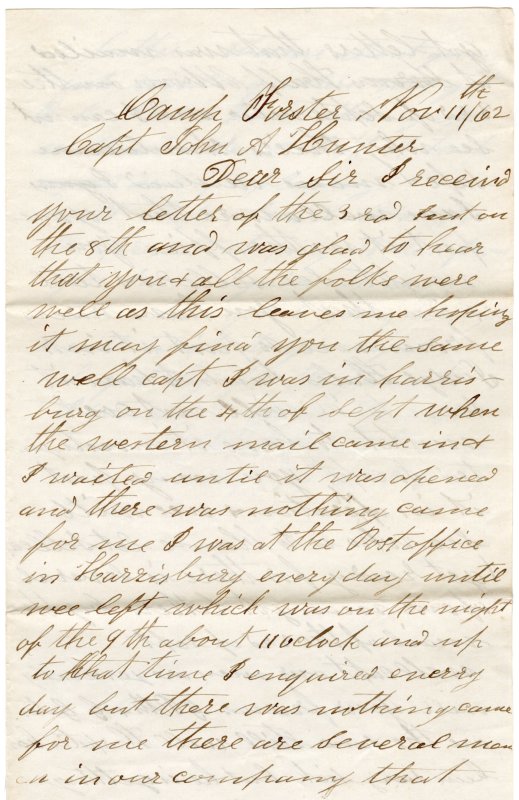 Camp Forster Nov 11th/62
Capt John A Hunter
Dear Sir I receivd
your letter of the 3rd Inst on
the 8th and was glad to hear
that you & all the folks were
well as this leaves me hoping
it may find you the same
well capt I was in harris
burg on the 4th of Sept when
the western mail came in &
I waited until it was opened
and there was nothing came
for me I was at the Post office
in Harrisburg every day until
wee left which was on the night
of the 9th about 11 oclock and up
to that time I enquired enerry
day but there was nothing came
for me there are several men
in our company that